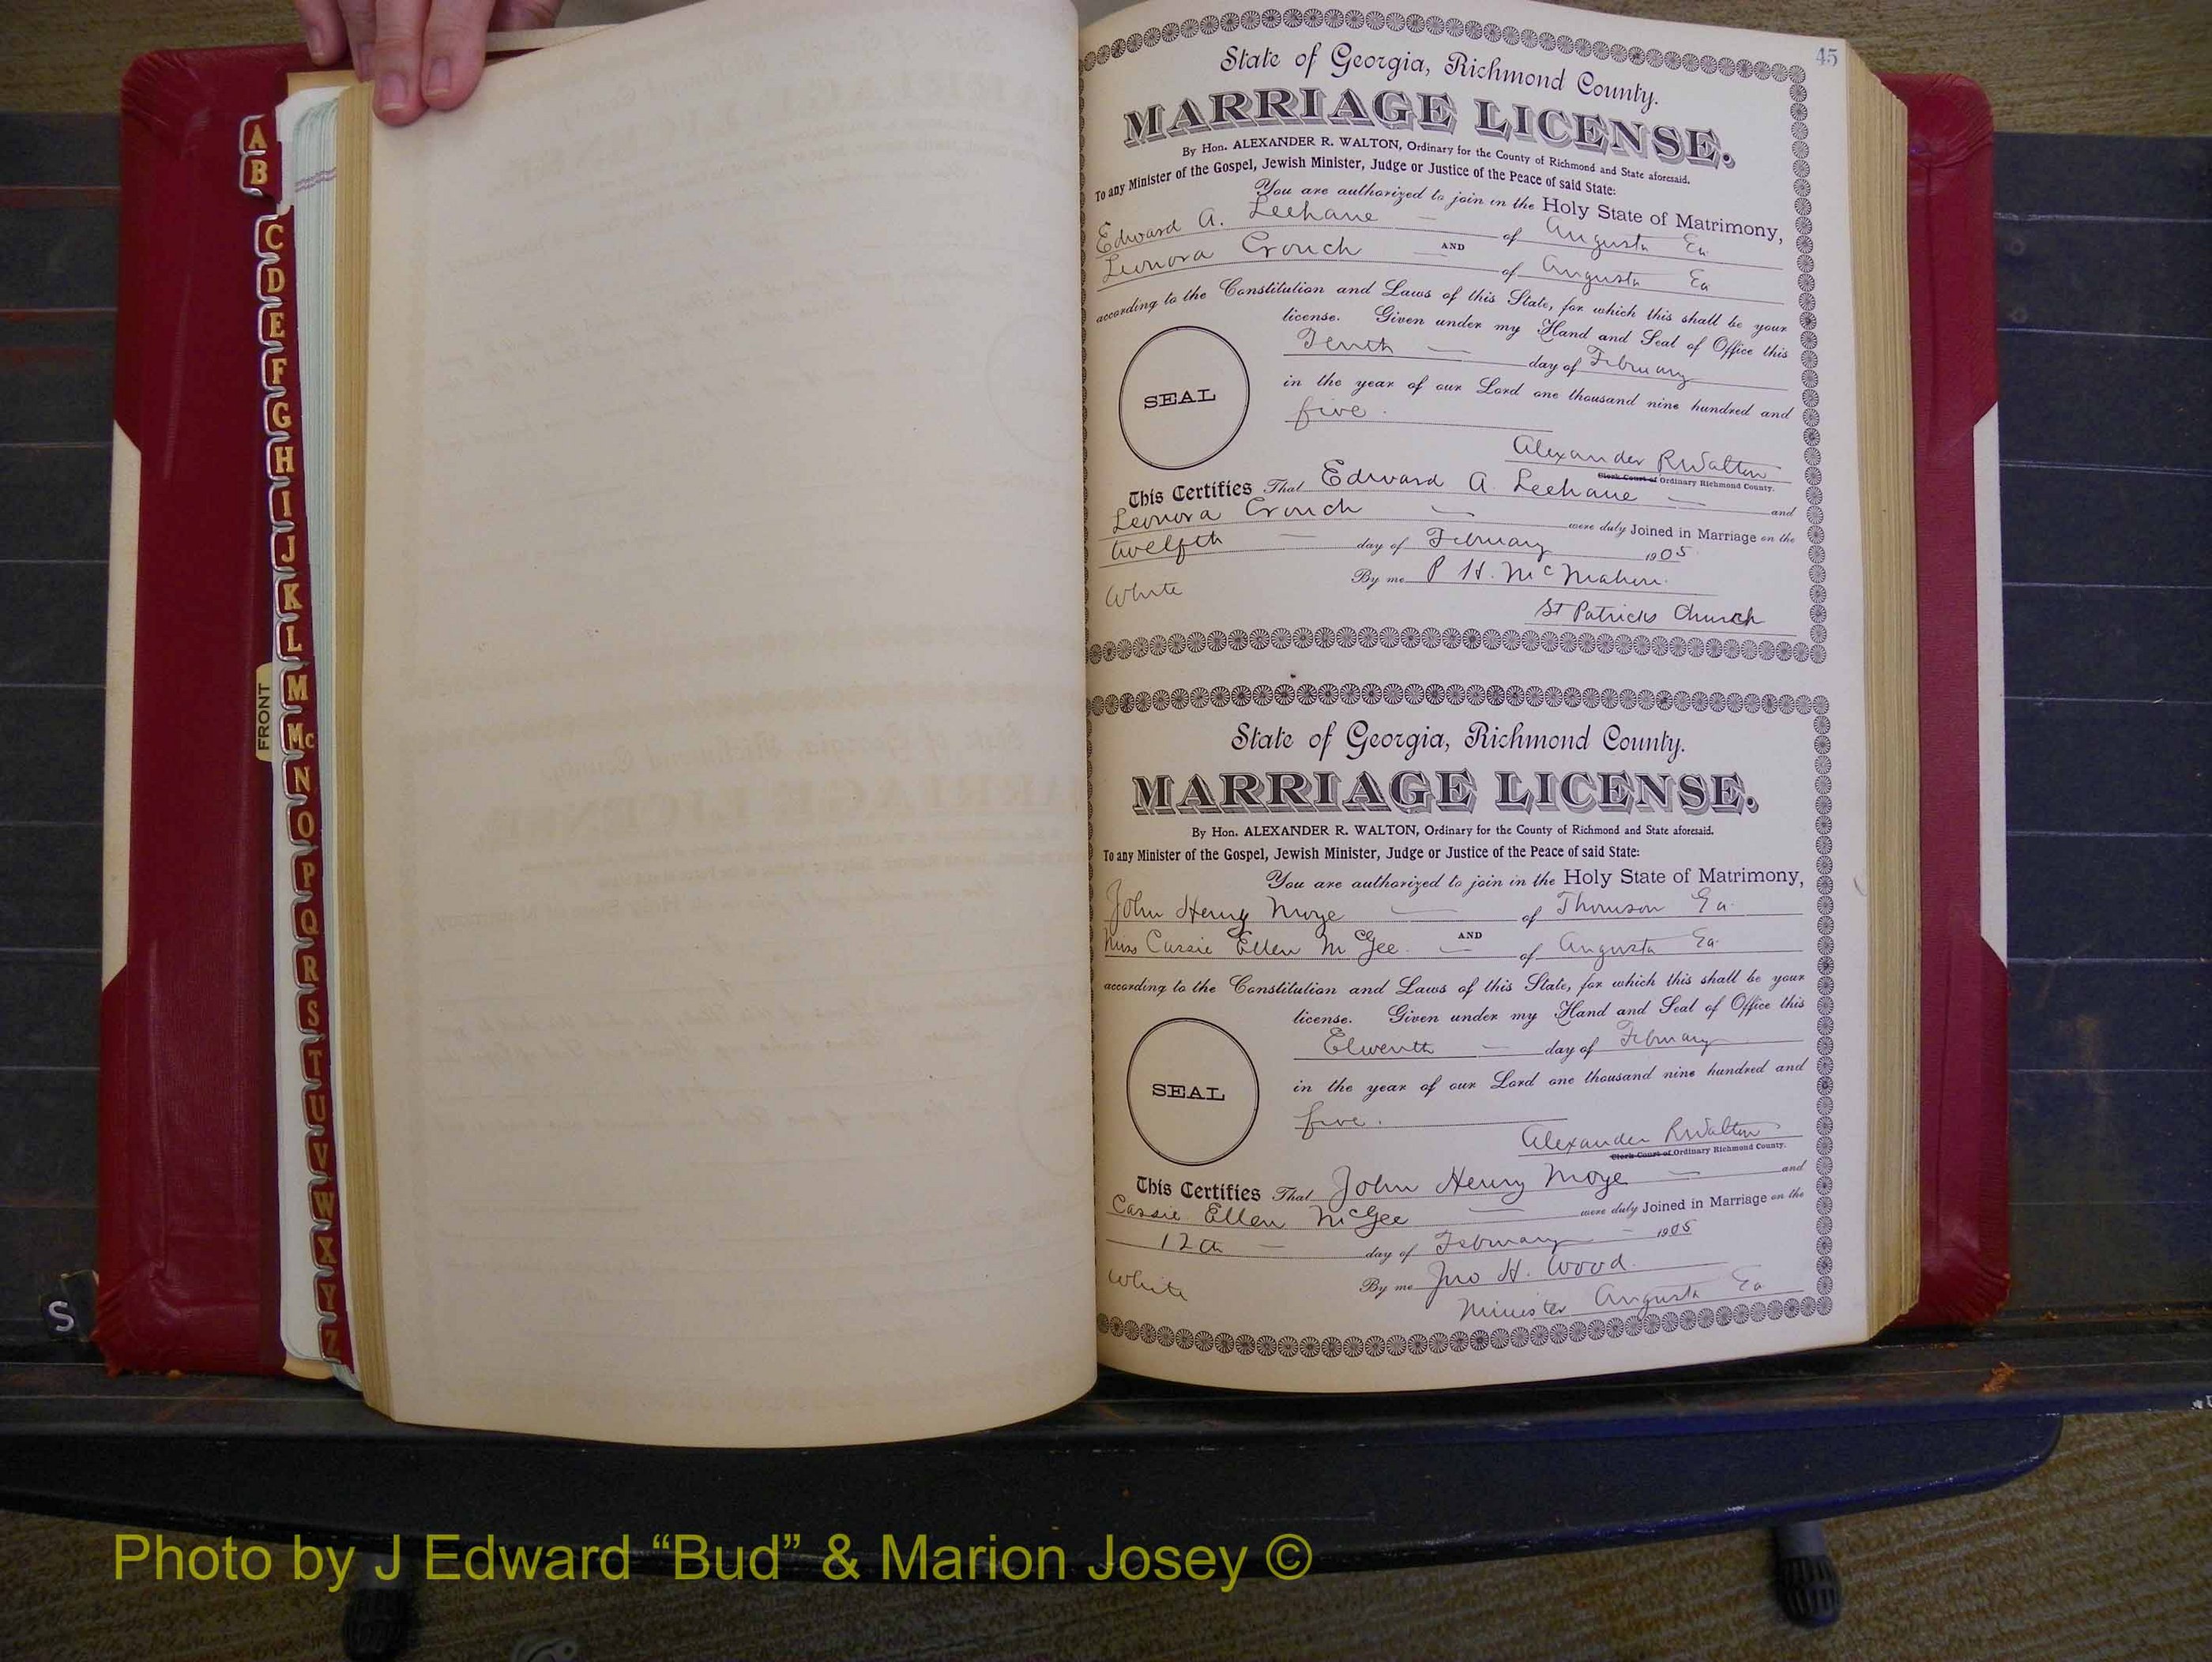 A
B
C
D
E
F
G
H
I
J
K
L
M
Mc
N
O
P
Q
R
S
T
U
V
W
X
Y
Z
FRONT
S
45
State of Georgia, Richmond County.
MARRIAGE LICENSE.
By Hon. ALEXANDER R. WALTON, Ordinary for the County of Richmond and State aforesaid.
To any Minister of the Gospel, Jewish Minister, Judge or Justice of the Peace of said State:
You are authorized to join in the Holy State of Matrimony,
Edward A. Leehane — of Augusta Ga.
AND
Leonora Crouch — of Augusta Ga
according to the Constitution and Laws of this State, for which this shall be your
license. Given under my Hand and Seal of Office this
Tenth — day of February
in the year of our Lord one thousand nine hundred and
five.
SEAL
Alexander R Walton
Clerk Court of Ordinary Richmond County.
This Certifies That Edward A. Leehane — and
Leonora Crouch — were duly Joined in Marriage on the
twelfth — day of February 1905
White By me P H. McMahon.
St Patricks Church
State of Georgia, Richmond County.
MARRIAGE LICENSE.
By Hon. ALEXANDER R. WALTON, Ordinary for the County of Richmond and State aforesaid.
To any Minister of the Gospel, Jewish Minister, Judge or Justice of the Peace of said State:
You are authorized to join in the Holy State of Matrimony,
John Henry Moye — of Thomson Ga.
AND
Miss Cassie Ellen McGee. — of Augusta Ga.
according to the Constitution and Laws of this State, for which this shall be your
license. Given under my Hand and Seal of Office this
Elventh — day of February
in the year of our Lord one thousand nine hundred and
five.
SEAL
Alexander R Walton
Clerk Court of Ordinary Richmond County.
This Certifies That John Henry Moye — and
Cassie Ellen McGee — were duly Joined in Marriage on the
12th — day of February — 1905
White By me Jno H. Wood.
Minister Augusta Ga
Photo by J Edward “Bud” & Marion Josey ©